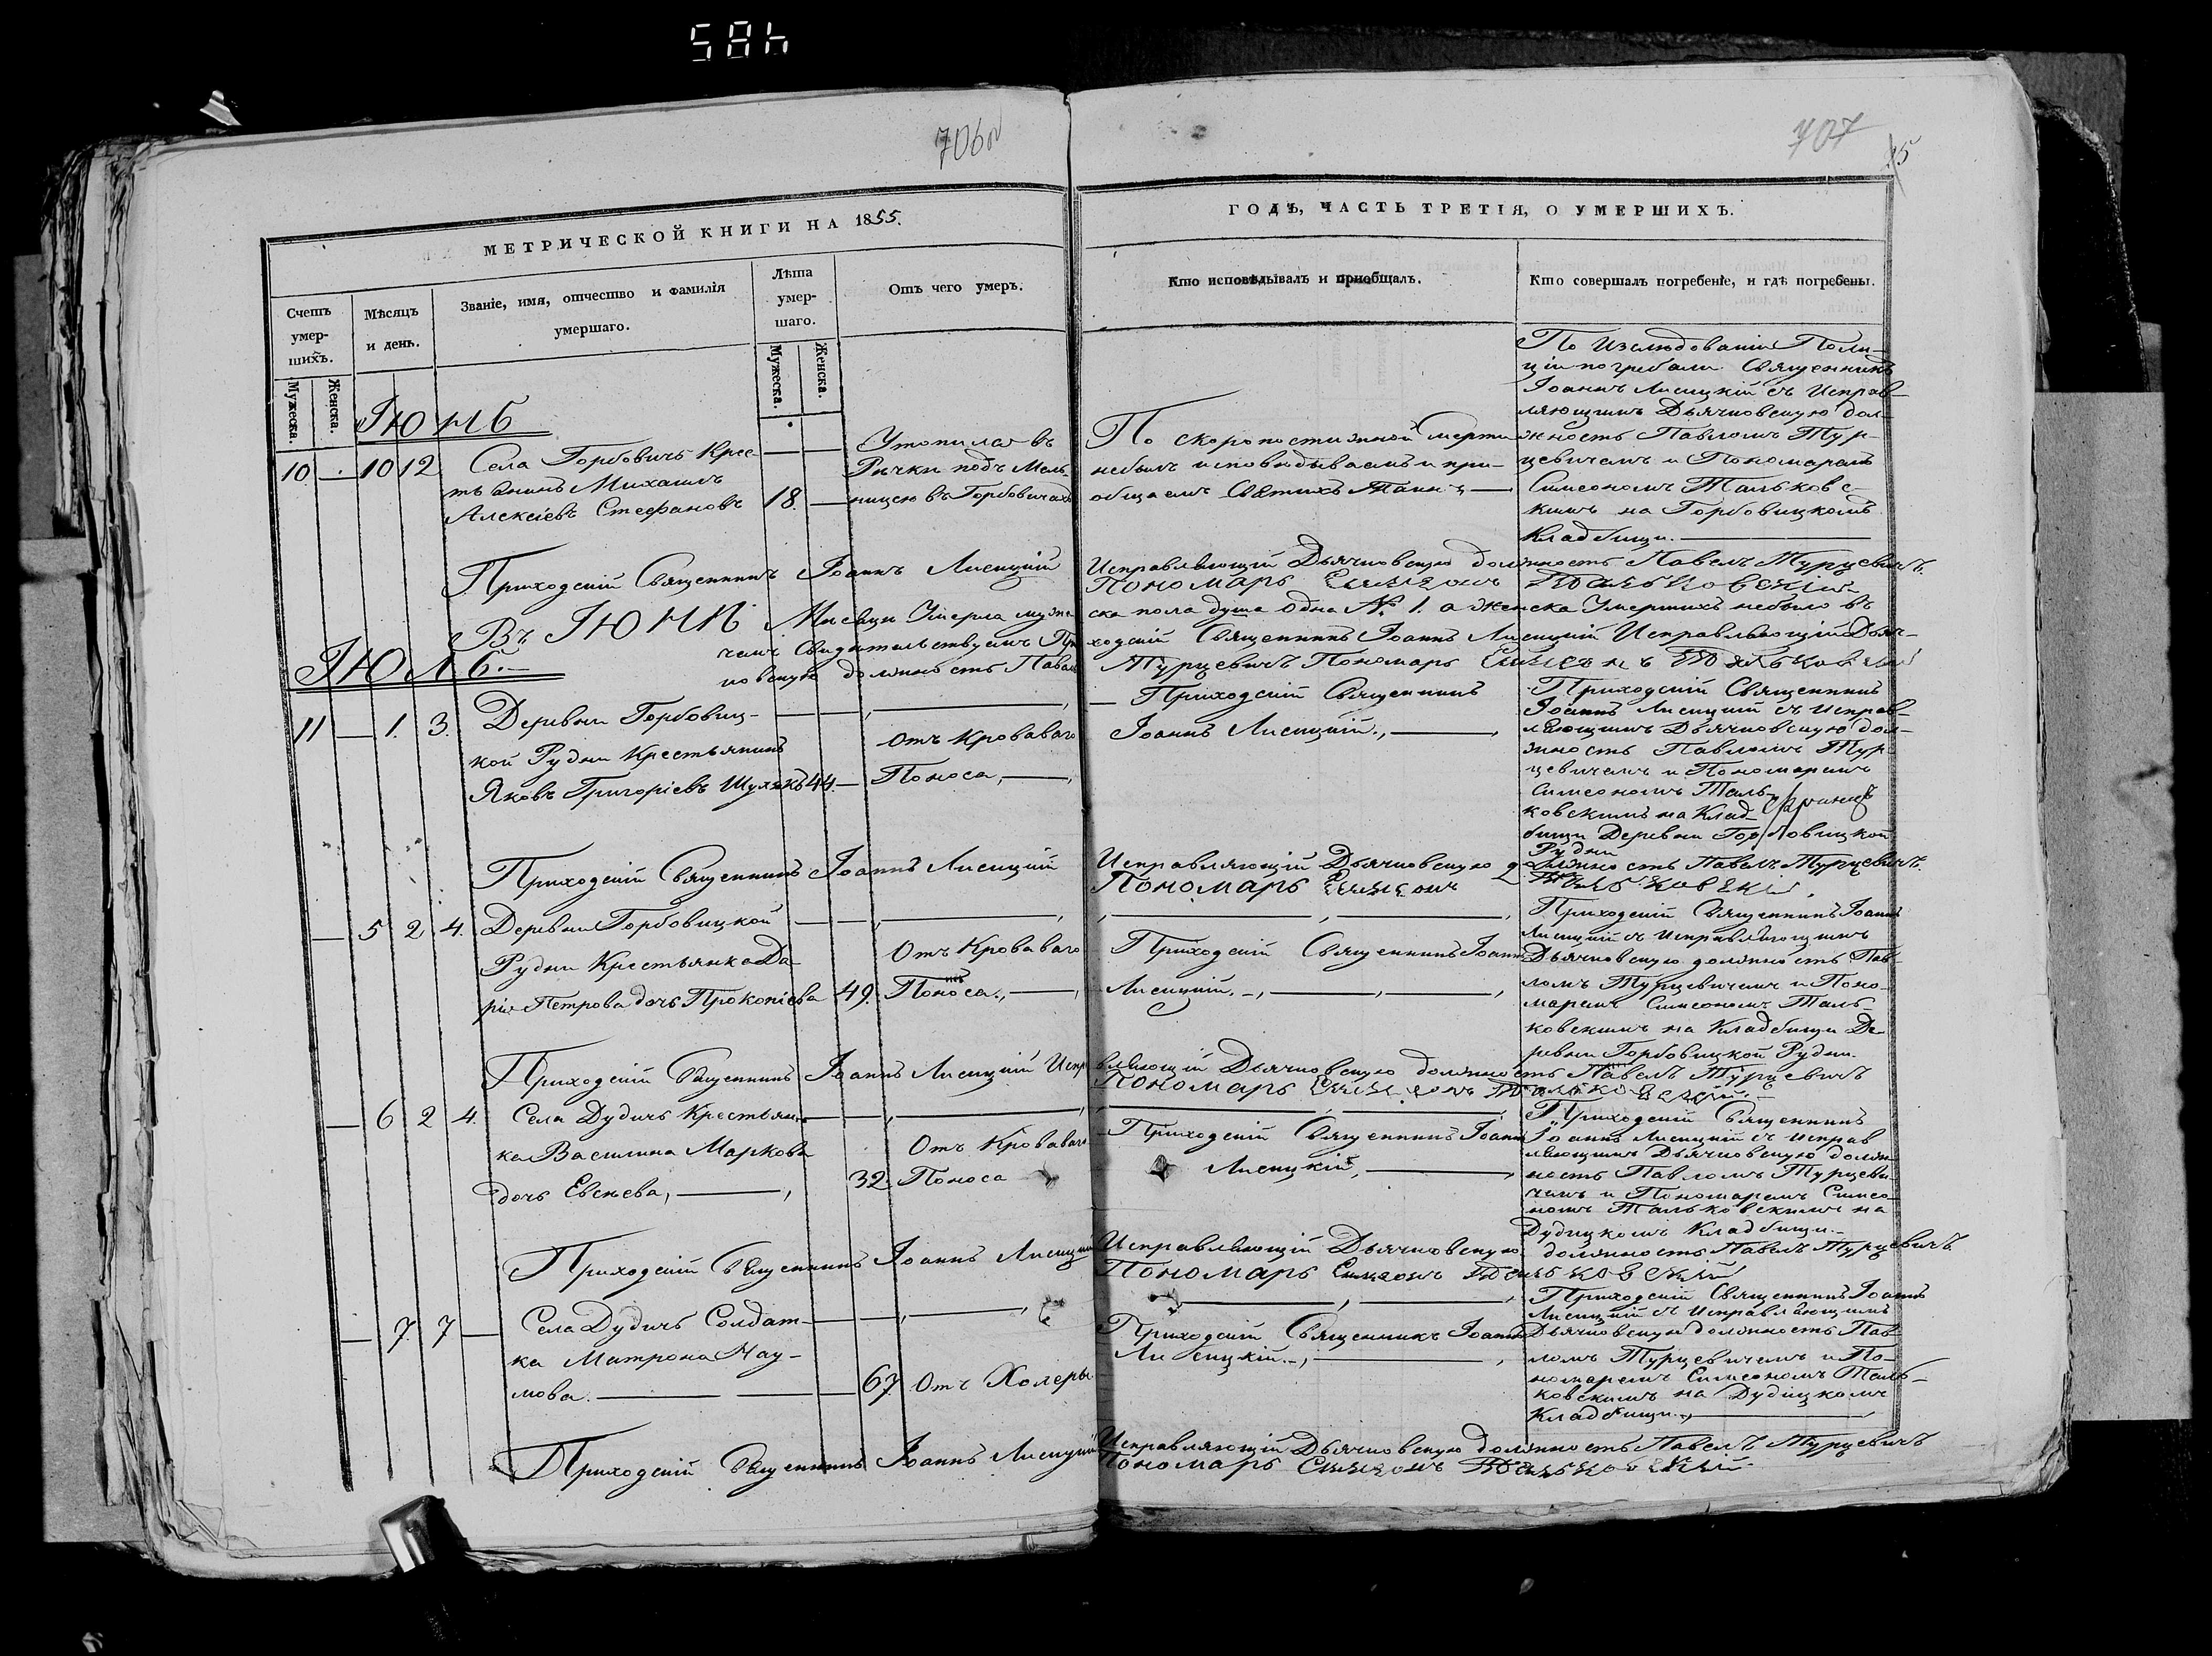 584
706об
707
МЕТРИЧЕСКОЙ КНИГИ НА 1855.
ГОДЪ, ЧАСТЬ ТРЕТІЯ, О УМЕРШИХЪ.
Счетъ умер-
шихъ.
Мужеска.
Женска.
Мѣсяцъ
и день.
Званіе, имя, отчество и фамилія
умершаго.
Лѣта
умер-
шаго.
Мужеска.
Женска.
Отъ чего умеръ.
Кто исповѣдывалъ и пріобщалъ.
Кто совершалъ погребеніе, и гдѣ погребены.
Іюнь
10 — 10 12
Села Горбовичь Крес
тьянинъ Михаилъ
Алексіевъ Стефановъ 18. —
Утопился въ
Рѣчки подъ Мель-
ницею въ Горбовичахъ
По скоропостижной смерти
небылъ исповѣдываемъ и прі-
общаемъ Святыхъ Таинъ —
По Изслѣдованіи Поли-
ціи погребали Священникъ
Іоаннъ Лисицкій съ Исправ-
ляющимъ Дьячковскую дол-
жность Павломъ Тур-
цевичемъ и Пономаремъ
Симеономъ Тальковс-
кимъ на Горбовицкомъ
Кладбищи. —
Приходскій Священникъ Іоаннъ Лисицкій Исправляющій Дьячковскую должность Павелъ Турцевичъ.
Пономарь Симеонъ Тальковскій
Въ Іюнѣ Мѣсяцѣ Умерла муже ска пола душа одна № 1. а женска Умершихъ небыло въ
чемъ Свидѣтельствуемъ При ходскій Священникъ Іоаннъ Лисицкій Исправляющій Дьяч-
ковскую должность Павелъ Турцевичъ Пономарь Симеонъ Тальковскій
Іюль. —
11 — 1. 3.
Деревни Горбовиц-
кой Рудни Крестьянинъ
Яковъ Григоріевъ Шулякъ 44. —
Отъ Кроваваго
Поноса, —
Приходскій Священникъ
Іоаннъ Лисицкій., —
Приходскій Священникъ
Іоаннъ Лисицкій съ Исправ-
ляющимъ Дьячковскую дол-
жность Павломъ Тур-
цевичемъ и Пономаремъ
Симеономъ Таль-
ковскимъ на Клад-
бищи Деревни Горбовицкой
Рудни
Приходскій Священникъ Іоаннъ Лисицкій Исправляющій Дьячковскую должность Павелъ Турцевичъ.
Пономарь Симеонъ Тальковскій
— 5 2 4.
Деревни Горбовицкой
Рудни Крестьянка Да
рія Петрова дочь Прокопіева 49.
Отъ Кроваваго
Поноса., —
Приходскій Священникъ Іоаннъ
Лисицкій. —
Приходскій Священникъ Іоаннъ
Лисицкій съ Исправляющимъ
Дьячковскую должность Пав-
ломъ Турцевичемъ и Поно-
маремъ Симеономъ Таль-
ковскимъ на Кладбищи Де-
ревни Горбовицкой Рудни.
Приходскій Священникъ Іоаннъ Лисицкій Испр вляющій Дьячковскую должность Павелъ Турцевичъ
Пономарь Симеонъ Тальковскій. —
— 6 2 4.
Села Дудичь Крестьян-
ка Василина Маркова
дочь Евсѣева, — 32.
Отъ Кроваваго
Поноса
Приходскій Священникъ Іоаннъ
Лисицкій, —
Приходскій Священникъ
Іоаннъ Лисицкій съ Исправ
ляющимъ Дьячковскую долж-
ность Павломъ Турцеви-
чемъ и Пономаремъ Симео-
номъ Тальковскимъ на
Дудицкомъ Кладбищи. —
Приходскій Священникъ Іоаннъ Лисицкій Исправляющій Дьячковскую должность Павелъ Турцевичъ
Пономарь Симеонъ Тальковскій
— 7. 7 —
Села Дудичь Солдат-
ка Матрона Нау-
мова. — 67
Отъ Холеры
Приходскій Священникъ Іоаннъ
Лисицкій. —
Приходскій Священникъ Іоаннъ
Лисицкій съ Исправляющимъ
Дьячковскую должность Пав-
ломъ Турцевичемъ и По-
номаремъ Симеономъ Таль-
ковскимъ на Дудицкомъ
Кладбищи. —
Приходскій Священникъ Іоаннъ Лисицкій Исправляющій Дьячковскую должность Павелъ Турцевичъ
Пономарь Симеонъ Тальковскій